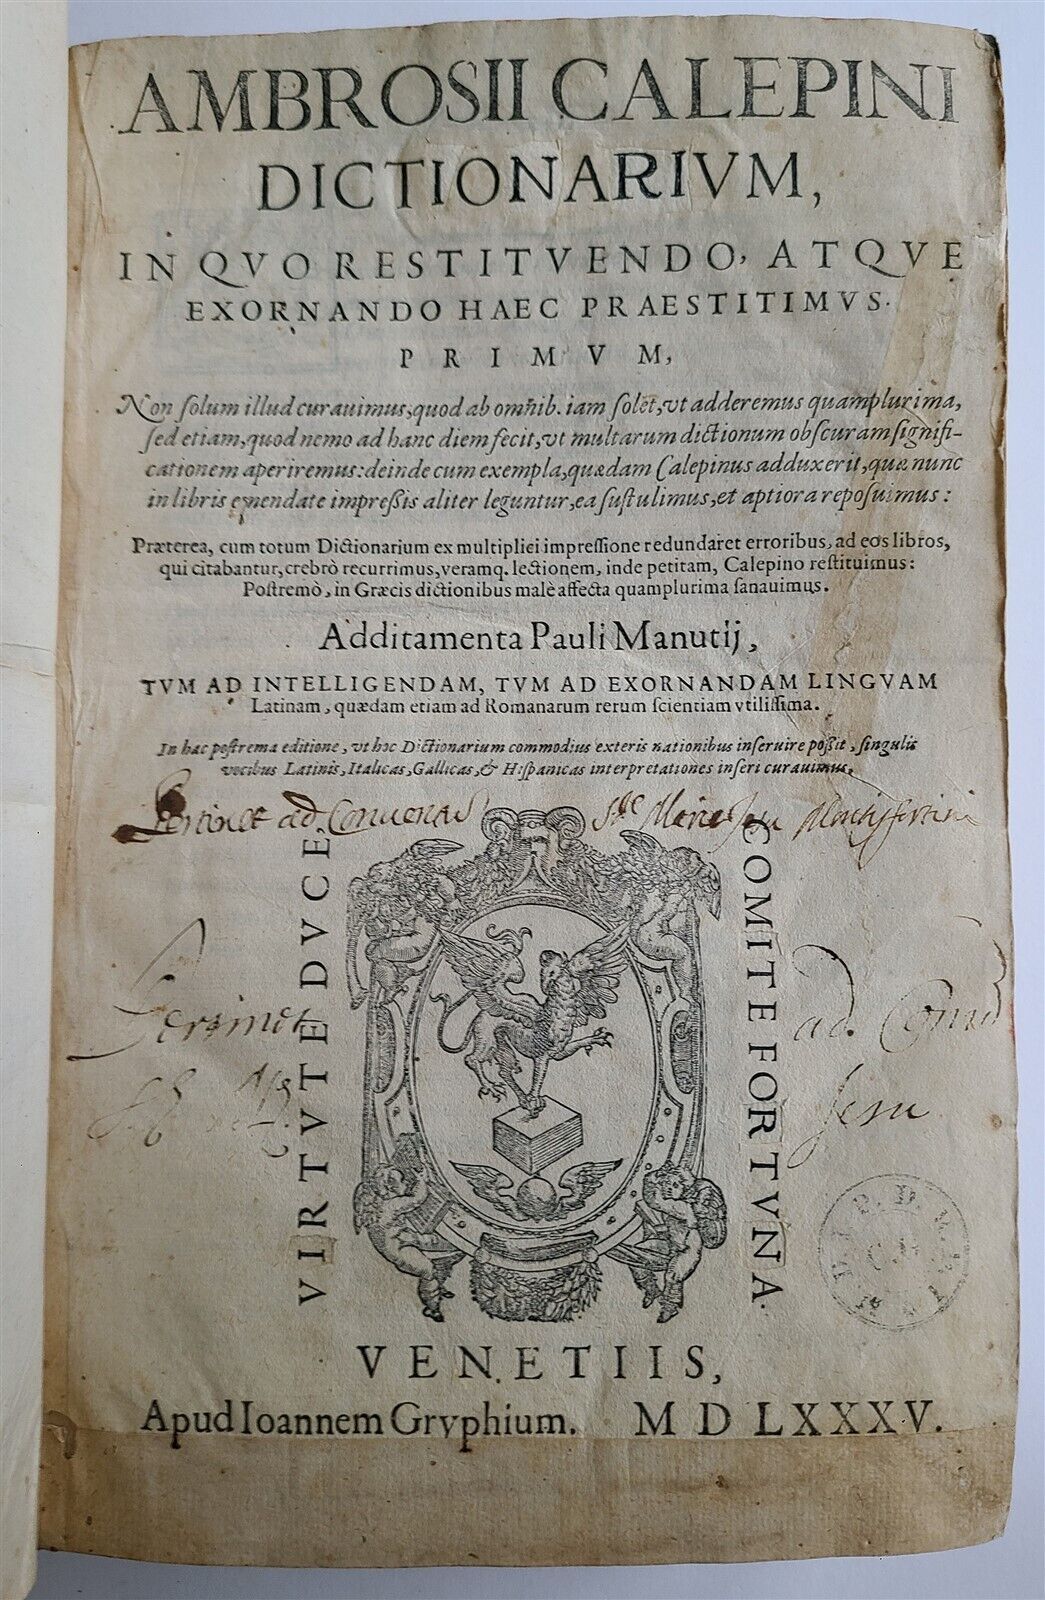 AMBROSII CALEPINI
DICTIONARIVM,
IN QVO RESTITVENDO, ATQVE
EXORNANDO HAEC PRAESTITIMVS.
PRIMVM,
Non solum illud curauimus, quod ab omnib. iam solet, vt adderemus quamplurima,
sed etiam, quod nemo ad hanc diem fecit, vt multarum dictionum obscuram signifi-
cationem aperiremus: deinde cum exempla, quædam Calepinus adduxerit, quæ nunc
in libris emendate impressis aliter leguntur, ea sustulimus, et aptiora reposuimus:
Præterea, cum totum Dictionarium ex multiplici impressione redundaret erroribus, ad eos libros,
qui citabantur, crebrò recurrimus, veramq. lectionem, inde petitam, Calepino restituimus:
Postremò, in Græcis dictionibus malè affecta quamplurima sanauimus.
Additamenta Pauli Manutij,
TVM AD INTELLIGENDAM, TVM AD EXORNANDAM LINGVAM
Latinam, quædam etiam ad Romanarum rerum scientiam vtilissima.
In hac postrema editione, vt hoc Dictionarium commodius exteris nationibus inseruire possit, singulis
vocibus Latinis, Italicas, Gallicas, & Hispanicas interpretationes inseri curauimus.
Pertinet ad
VIRTVTE DVCE
COMITE FORTVNA.
ad
Jesu
VENETIIS,
Apud Ioannem Gryphium. MDLXXXV.